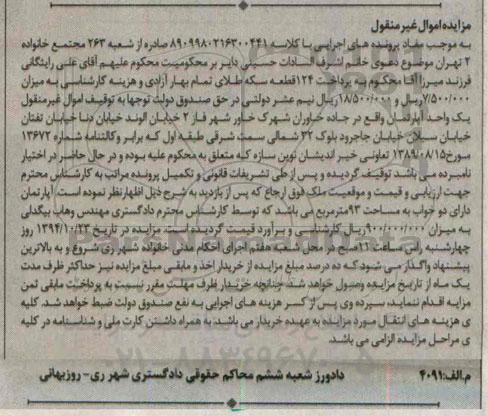 مزایده اموال غیر منقول
به موجب مفاد پرونده های اجرایی با کلاسه ۸۹۰۹۹۸۰۲۱۶۳۰۰۴۴۱ صادره از شعبه ۲۶۳ مجتمع خانواده
۲ تهران موضوع دعوی خانم اشرف السادات حسینی دایر بر محکومیت محکوم علیهم آقای علی رایتگانی
فرزند میرزا آقا محکوم به پرداخت ۱۲۴قطعه سکه طلای تمام بهار آزادی و هزینه کارشناسی به میزان
۷/۵۰۰/۰۰۰ریال و ۱۸/۵۰۰/۰۰۰ ریال نیم عشر دولتی در حق صندوق دولت توجها به توقیف اموال غیر منقول
یک واحد آپارتمان واقع در جاده خاوران شهرک خاور شهر فاز ۲ خیابان الوند خیابان دنا خیابان تفتان
خیابان سبلان خیابان جاجرود بلوک ۳۲ شمالی سمت شرقی طبقه اول که برابر وکالتنامه شماره ۱۳۶۷۲
مورخ۱۳۸۹/۰۸/۱۵ تعاونی خیر اندیشان نوین سازه که متعلق به محکوم علیه بوده و در حال حاضر در اختیار
نامبرده می باشد توقیف گردیده و پس از طی تشریفات قانونی و تکمیل پرونده مراتب به کارشناس محترم
جهت ارزیابی و قیمت و موقعیت ملک فوق ارجاع که پس از بازدید به شرح ذیل اظهارنظر نموده است. آپارتمان
دارای دو خواب به مساحت ۹۳مترمربع می باشد که توسط کارشناس محترم دادگستری مهندس وهاب بیگدلی
به میزان ۹۰۰/۰۰۰/۰۰۰ریال کارشناسی و برآورد قیمت گردیده است. مزایده در تاریخ ۱۳۹۴/۱۰/۲۳ روز
چهارشنبه راس ساعت ۱۱صبح در محل شعبه هفتم اجرای احکام مدنی خانواده شهر ری شروع و به بالاترین
پیشنهاد واگذار می شود که ده درصد مبلغ مزایده از خریدار اخذ و مابقی مبلغ مزایده نیز حداکثر ظرف مدت
یک ماه از تاریخ مزایده وصول خواهد شد. چنانچه خریدار ظرف مهلت مقرر نسبت به پرداخت مابقی ثمن
مزایه اقدام ننماید، سپرده وی پس از کسر هزینه های اجرایی به نفع صندوق دولت ضبط خواهد شد. کلیه
ی هزینه های انتقال مورد مزایده به عهده خریدار می باشد. به همراه داشتن کارت ملی و شناسنامه در کلیه
ی مراحل مزایده الزامی می باشد.
م.الف:۴۰۹۱ دادورز شعبه ششم محاکم حقوقی دادگستری شهر ری- روزبهانی
۰۲۱-۸۸۳۴۹۶۷۰-۵